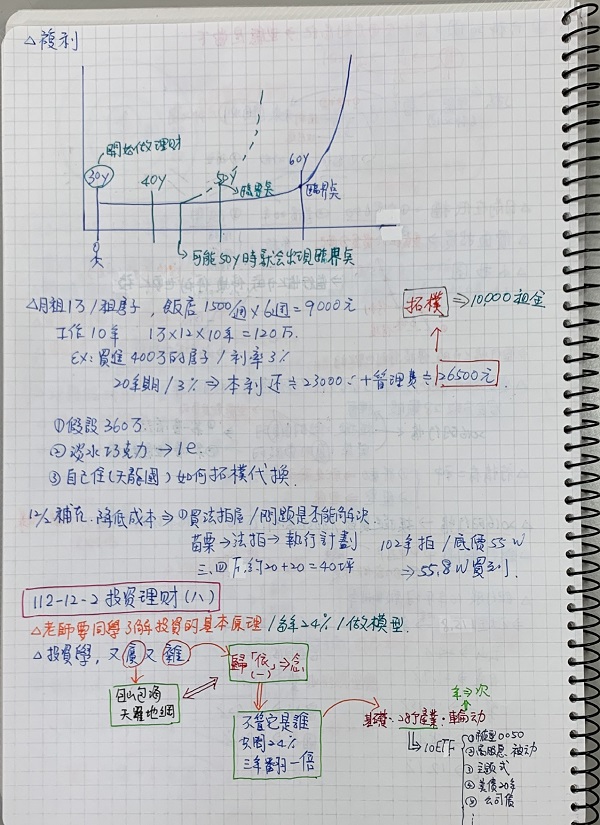 △複利
開始做理財
30y
40y
50y
臨界矣
60y
臨界矣
可能50y時就会出現臨界矣
△月租1万/租房子, 飯店1500/週×6週=9000元
拓樸⇒10000租金
工作10年 1万×12×10年=120万.
EX:買進400万的房子/利率3%
20年期/3%⇒本利还≒23000 +管理費≒26500元.
①假設360万
②淡水巧克力→1e.
③自己住(天龍國)如何拓樸代換.
12/2補充.降低成本⇒①買法拍屋/問題是否能解決.
苗栗→法拍→執行計劃 102年拍/底價55W
三、四F,約20+20=40坪 ⇒55.8W買到.
112-12-2投資理財(八)
△老師要同學了解投資的基本原理/每年24%/做模型.
△投資學,又廣又雜
歸「依」⇒念
(一)
包山包海
天羅地網
不管它是誰
24%
三年翻一倍
年⇒次
基礎·28個產業·輪动
10ETF
①0050
②高股息 被动
③主題式
④美債20年
⑤公司債
⋮